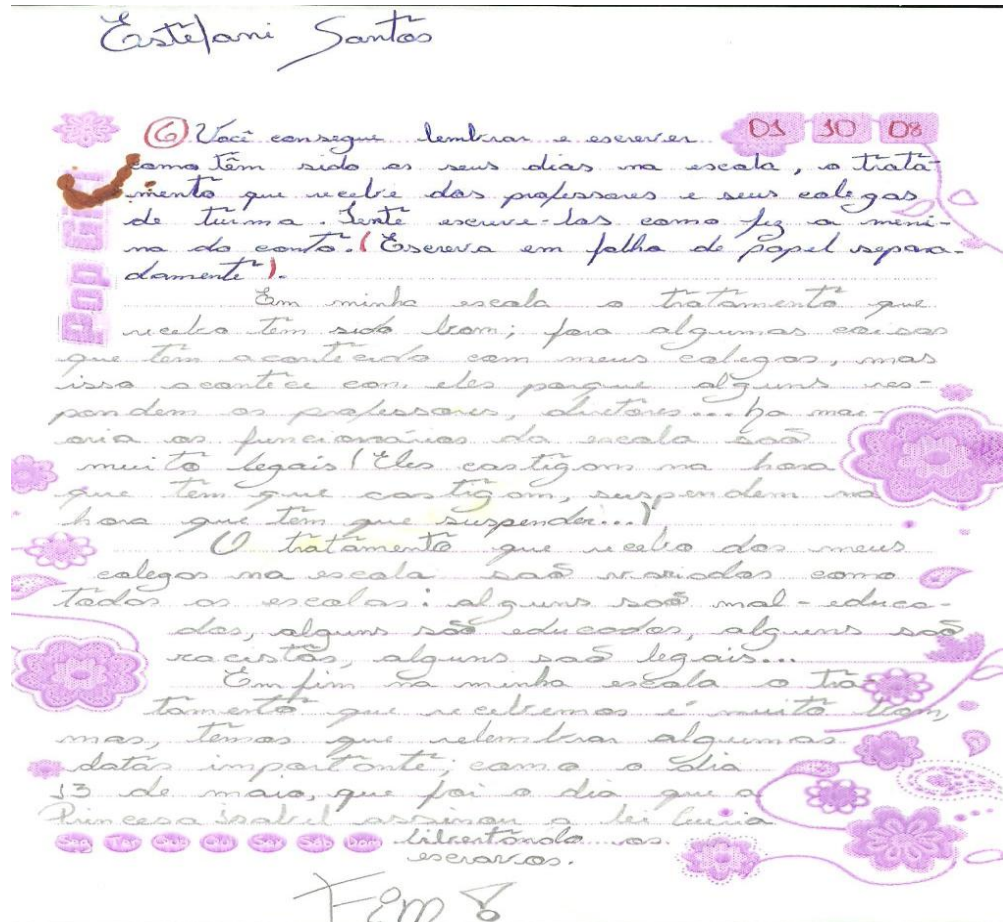 Estefani Santos
01 10 08
6 Você consegue lembrar e escrever
como têm sido os seus dias na escola, o trata-
mento que recebe dos professores e seus colegas
de turma. Tente escreve-las como fez a meni-
na do conto. (Escreva em folha de papel separa-
damente).
Pop Girl
Em minha escola o tratamento que
recebo tem sido bom; fora algumas coisas
que têm acontecido com meus colegas, mas
isso acontece com eles porque alguns res-
pondem os professores, diretores... Na mai-
oria os funcionários da escola saõ
muito legais (Eles castigam na hora
que tem que castigam, suspendem na
hora que tem que suspender...)
O tratamento que recebo dos meus
colegas na escola saõ variados como
todas as escolas: alguns saõ mal-educa-
dos, alguns são educados, alguns saõ
racistas, alguns saõ legais...
Em fim na minha escola o tra-
tamento que recebemos é muito bom,
mas, temos que relembrar algumas
datas importante; como o dia
13 de maio, que foi o dia que a
Princesa Isabel assinou a lei Áuria
libertando os
escravos.
Seg Ter Qua Qui Sex Sáb Dom
Fim